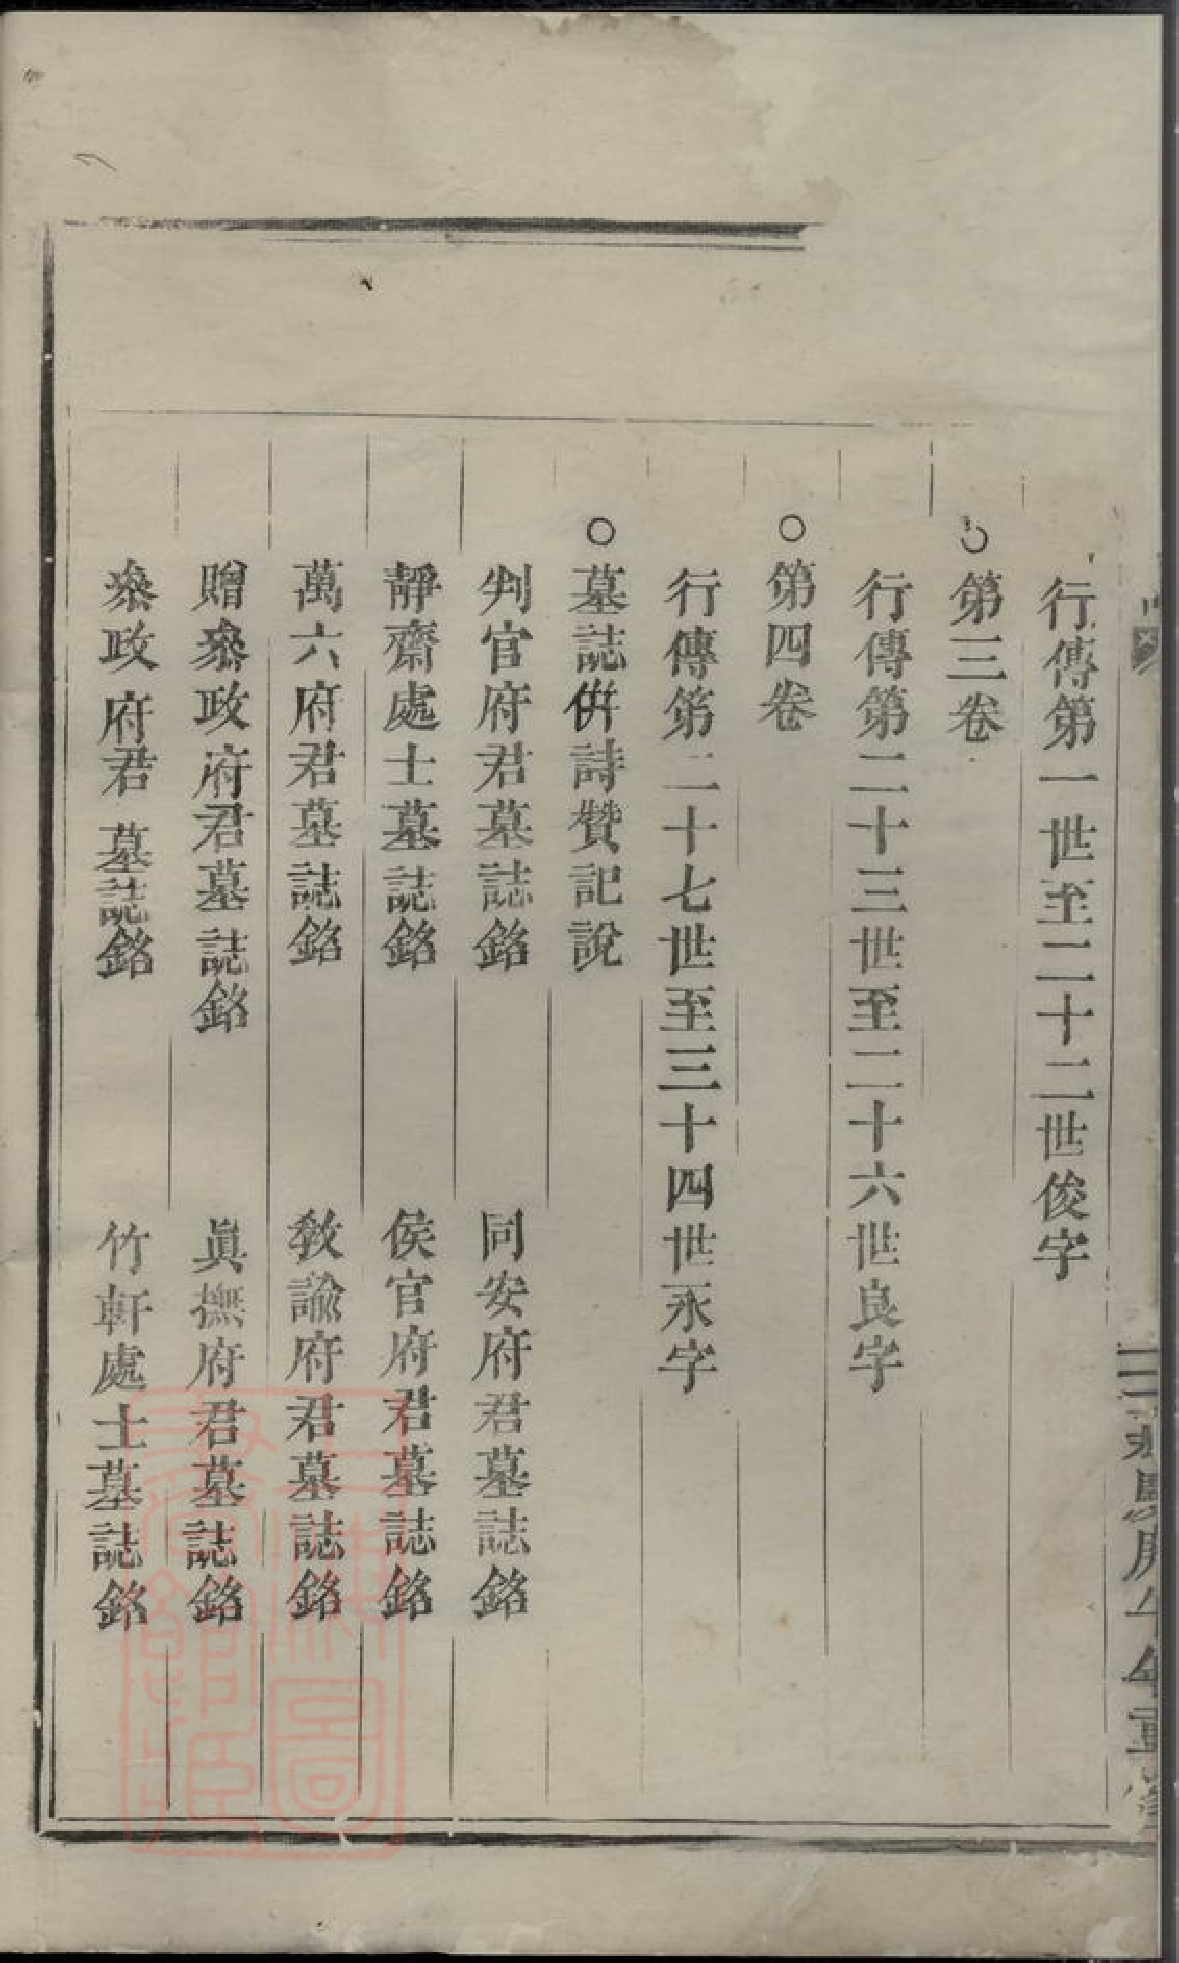 行傳第一世至二十二世俊字
○第三卷
行傳第二十三世至二十六世良字
○第四卷
行傳第二十七世至三十四世永字
○墓誌併詩贊記說
判官府君墓誌銘　同安府君墓誌銘
靜齋處士墓誌銘　侯官府君墓誌銘
萬六府君墓誌銘　敎諭府君墓誌銘
贈叅政府君墓誌銘　眞撫府君墓誌銘
叅政府君墓誌銘　竹軒處士墓誌銘